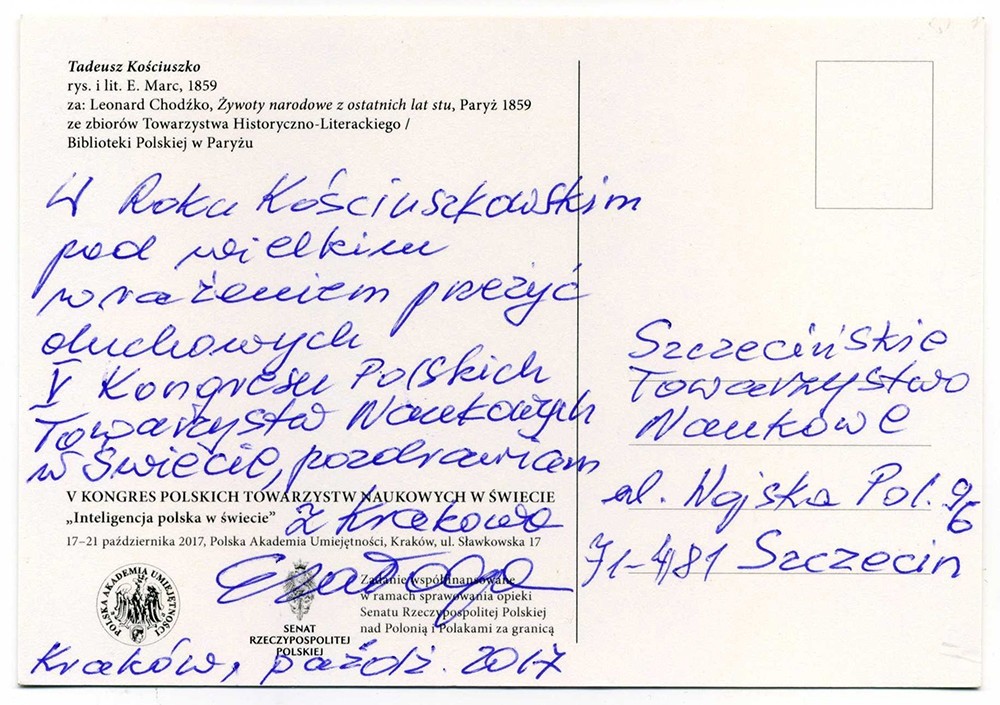 Tadeusz Kościuszko
rys. i lit. E. Marc, 1859
za: Leonard Chodźko, Żywoty narodowe z ostatnich lat stu, Paryż 1859
ze zbiorów Towarzystwa Historyczno-Literackiego /
Biblioteki Polskiej w Paryżu
W Roku Kościuszkowskim
pod wielkim
wrażeniem przeżyć
duchowych
V Kongresu Polskich
Towarzystw Naukowych
w Świecie, pozdrawiam
V KONGRES POLSKICH TOWARZYSTW NAUKOWYCH W ŚWIECIE
„Inteligencja polska w świecie”
z Krakowa
17–21 października 2017, Polska Akademia Umiejętności, Kraków, ul. Sławkowska 17
POLSKA AKADEMIA UMIEJĘTNOŚCI
SENAT
RZECZYPOSPOLITEJ
POLSKIEJ
Zadanie współfinansowane
w ramach sprawowania opieki
Senatu Rzeczypospolitej Polskiej
nad Polonią i Polakami za granicą
Kraków, paźdz. 2017
Szczecińskie
Towarzystwo
Naukowe
al. Wojska Pol. 96
71-481 Szczecin